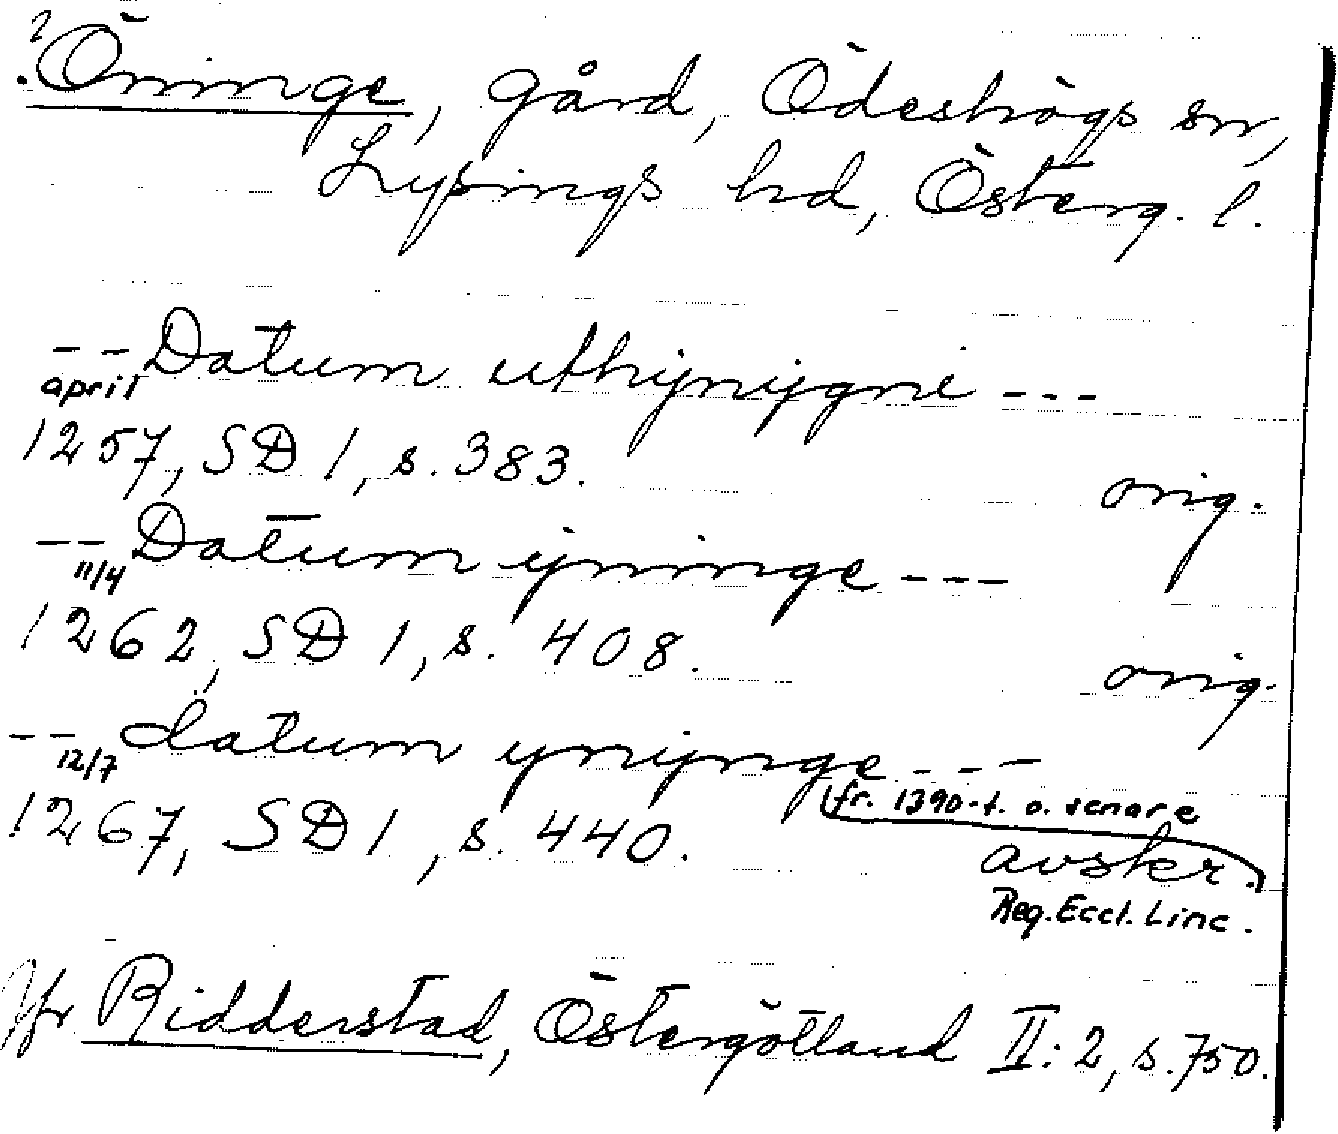 ? Öninge, gård, Ödeshögs sn,
Lysings hd, Österg. l.
-- Datum uthijnijgni ---
april
1257, SD 1, s. 383.
orig.
-- Datum ijninge ---
11/4
1262, SD 1, s. 408.
orig.
-- datum ynijnge ---
12/7
fr. 1390-t. o. senare
1267, SD 1, s. 440.
avskr.
Reg. Eccl. Linc.
Jfr Ridderstad, Östergötland II: 2, s. 750.